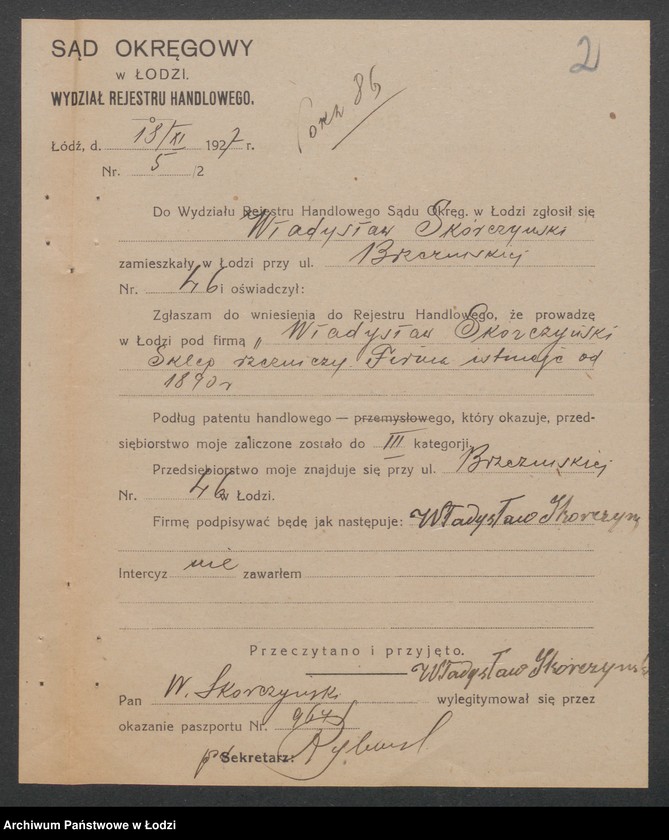 2
SĄD OKRĘGOWY
w ŁODZI.
WYDZIAŁ REJESTRU HANDLOWEGO.
86
Łódź, d. 13/XI 1927 r.
Nr. 5/2
Do Wydziału Rejestru Handlowego Sądu Okręg. w Łodzi zgłosił się
Władysław Skórczyński
zamieszkały w Łodzi przy ul. Brzezińskiej
Nr. 46 i oświadczył:
Zgłaszam do wniesienia do Rejestru Handlowego, że prowadzę
w Łodzi pod firmą „Władysław Skorczyński
Sklep rzeźniczy Firma istnieje od
1890 r
Podług patentu handlowego — przemysłowego, który okazuje, przed-
siębiorstwo moje zaliczone zostało do III kategorji.
Przedsiębiorstwo moje znajduje się przy ul. Brzezinskiej
Nr. 46 w Łodzi.
Firmę podpisywać będę jak następuje: Władysław Skorczyn
Intercyz nie zawarłem
Przeczytano i przyjęto.
Władysław Skórczyńsk
Pan W. Skorczynski wylegitymował się przez
okazanie paszportu Nr.
Sekretarz:
Archiwum Państwowe w Łodzi